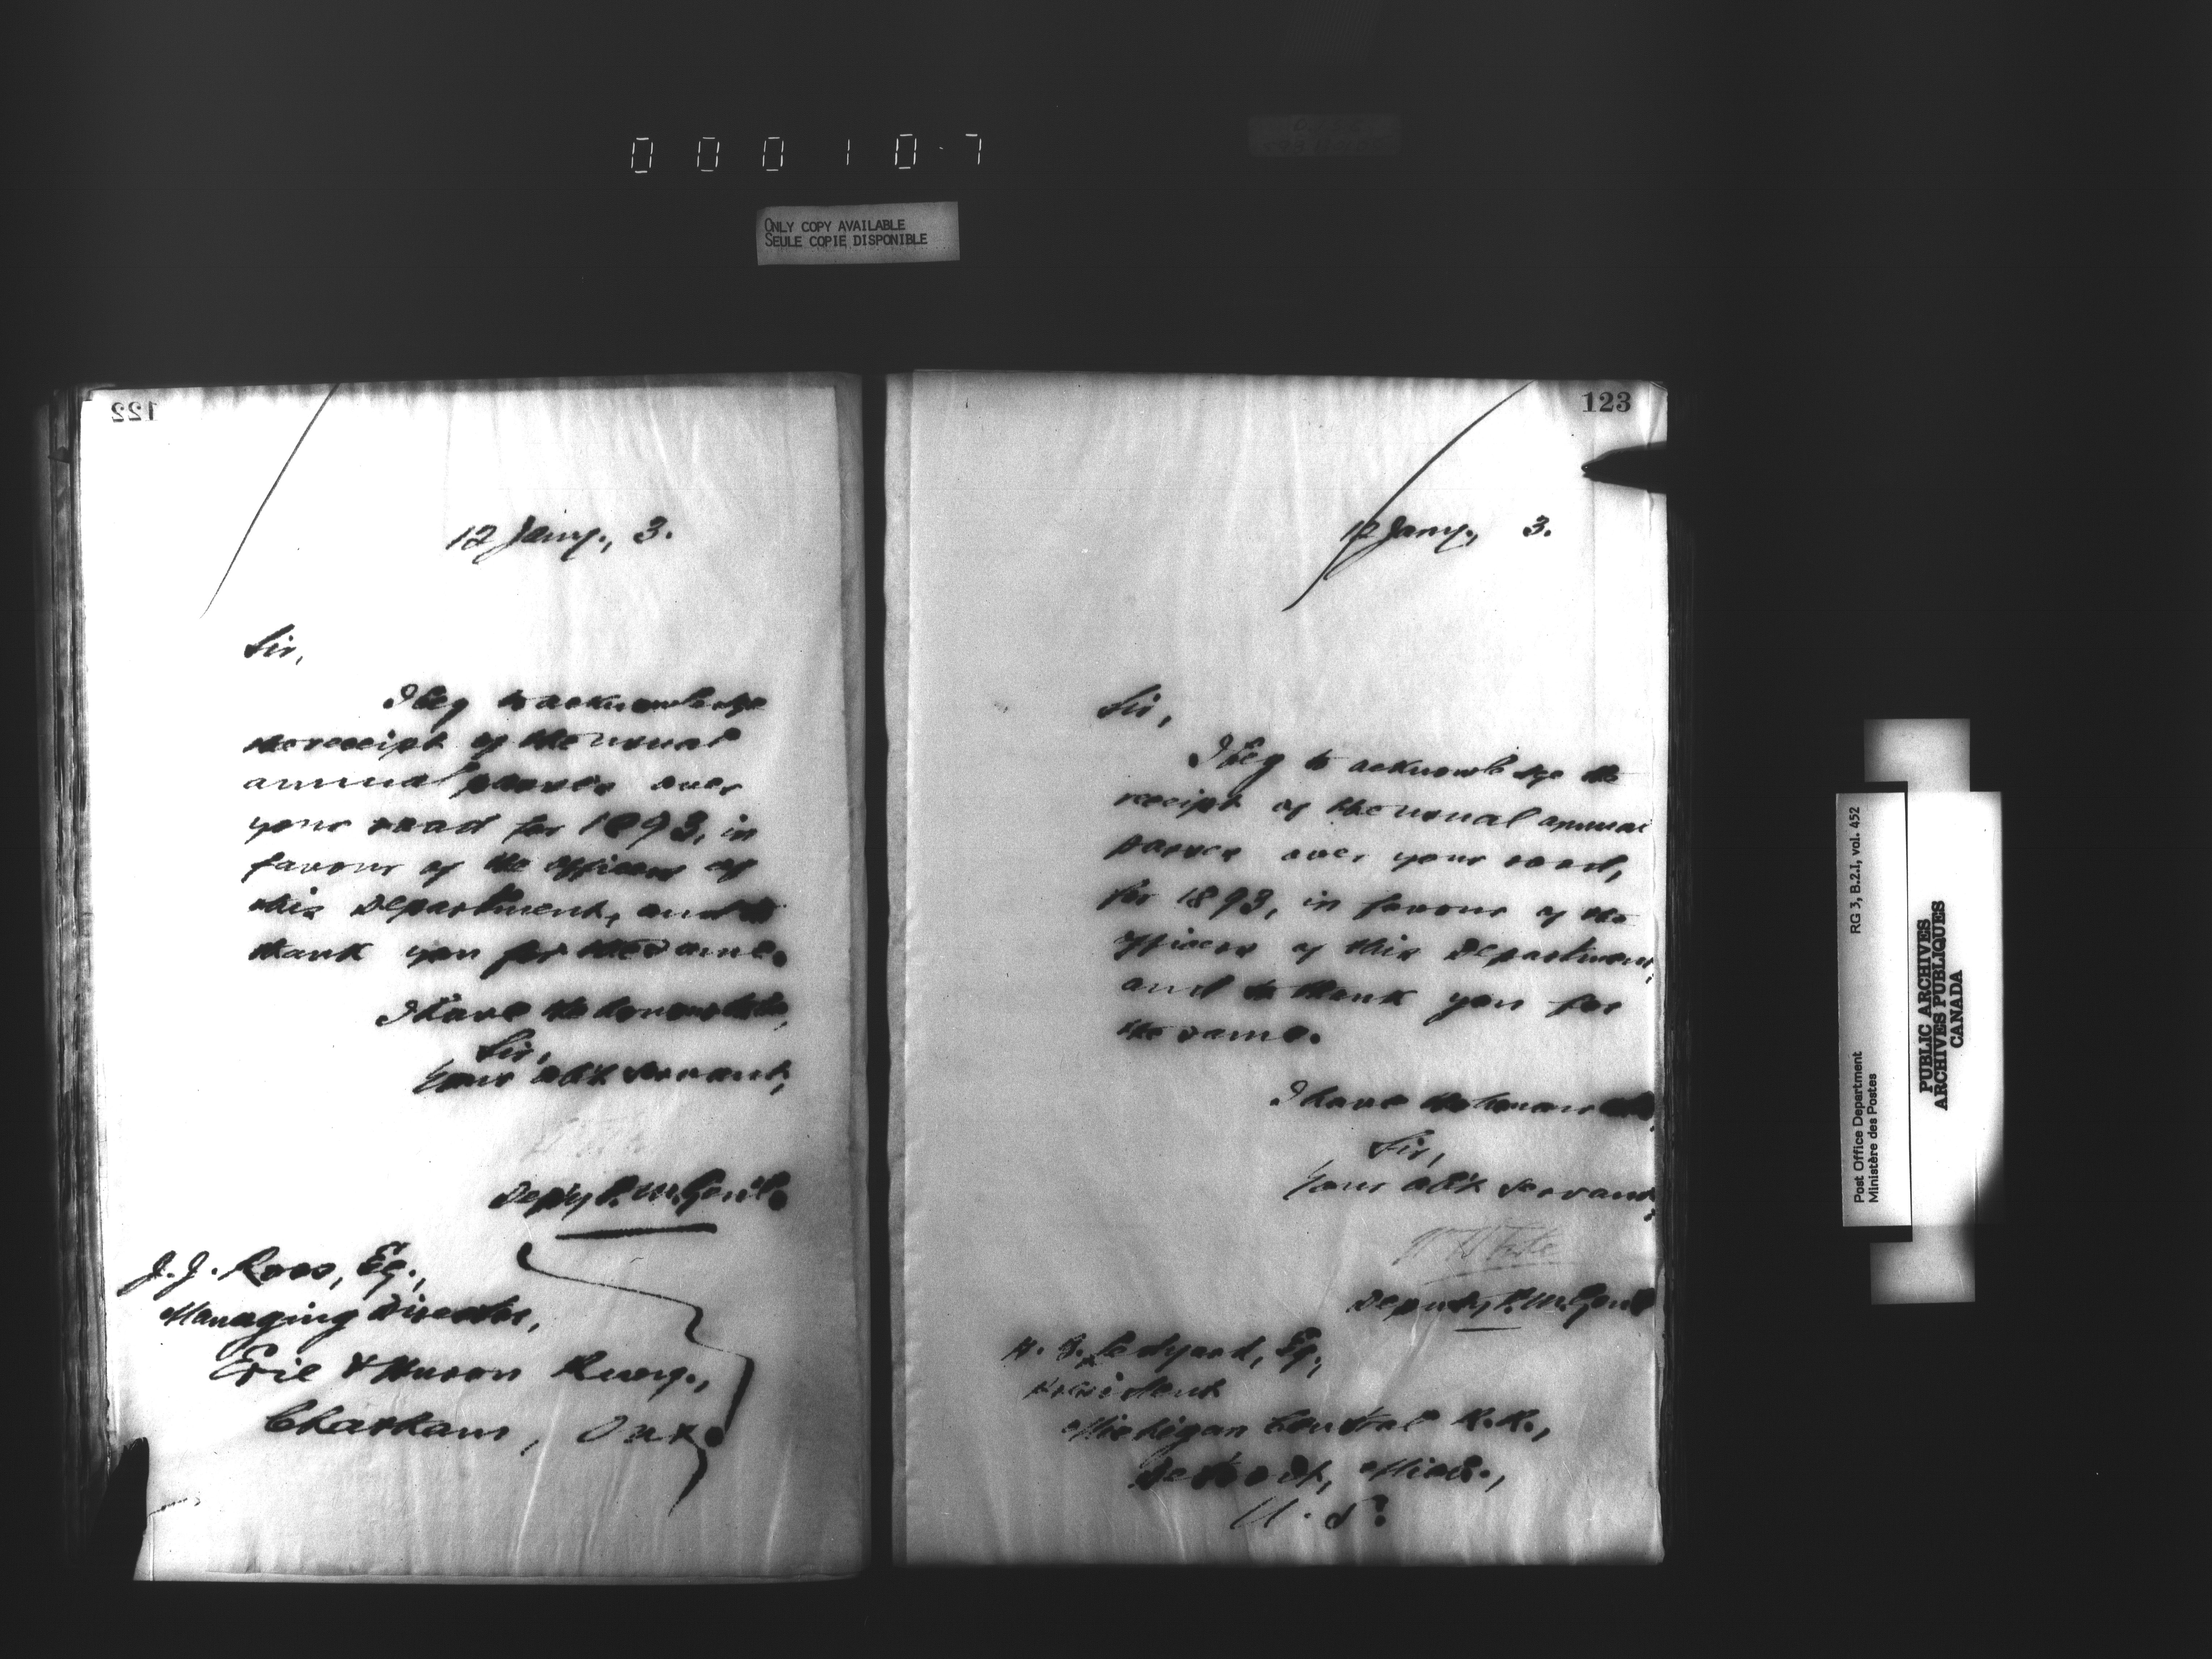 0 0 0 1 0 7
ONLY COPY AVAILABLE
SEULE COPIE DISPONIBLE
122
12 Jany., 3.
Sir,
I beg to acknowledge
the receipt of the usual
annual passes over
your road for 1893, in
favour of the officers of
this Department, and to
thank you for the same.
I have the honour to be,
Sir,
Your obt servant,
Dep'y P. M. Gen'l.
J. J. Ross, Esq.,
Managing Director,
Erie & Huron Ruey.,
Chatham, Ont.
123
12 Jany., 3.
Sir,
I beg to acknowledge the
receipt of the usual annual
passes over your road,
for 1893, in favour of the
officers of this Department,
and to thank you for
the same.
I have the honour to be,
Sir,
Your obt servant,
Deputy P. M. Genl
H. B. Ledyard, Esq.,
President
Michigan Central R.R.,
Detroit, Mich.,
U. S.
Post Office Department
Ministère des Postes
RG 3, B.2.I, vol. 452
PUBLIC ARCHIVES
ARCHIVES PUBLIQUES
CANADA